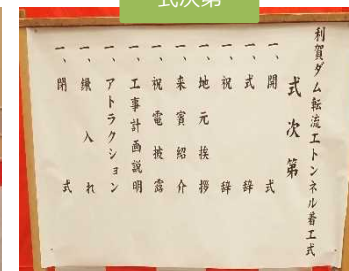 式次第
利賀ダム転流工トンネル着工式
式次第
一、開式
一、式辞
一、祝辞
一、地元挨拶
一、来賓紹介
一、祝電披露
一、工事計画説明
一、アトラクション
一、鍬入れ
一、閉式